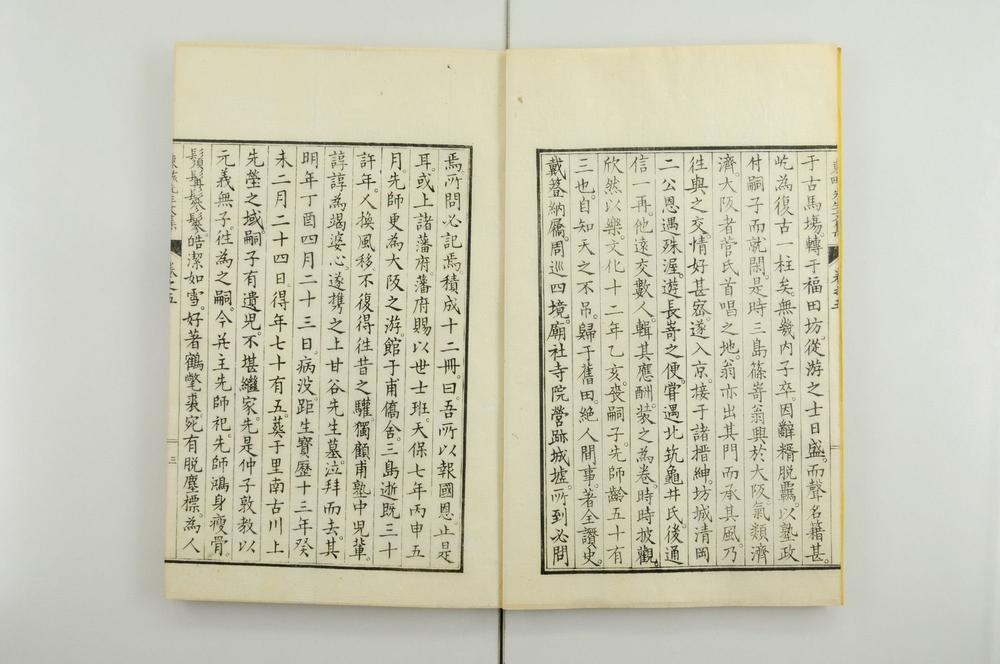 于古馬場。轉于福田坊。從游之士日盛。而聲名籍甚。
屹為復古一柱矣。無幾內子卒。因辭糈脫羈。以塾政
付嗣子而就閑。是時三島篠嵜翁興於大阪。氣類濟
濟。大阪者菅氏首唱之地。翁亦出其門而承其風。乃
徃與之交。情好甚密。遂入京。接于諸搢紳。坊城清岡
二公恩遇殊渥。遊長嵜之便。嘗遇北筑龜井氏。後通
信一再。他遠交數人。輯其應酬。裝之為卷。時時披觀。
欣然以樂。文化十二年乙亥。喪嗣子。先師齡五十有
三也。自知天之不吊。歸于舊田。絕人間事。著全讚史。
戴簦納屩。周巡四境。廟社寺院營跡城墟。所到必問
焉。所問必記焉。積成十二冊。曰。吾所以報國恩。止是
耳。或上諸藩府。藩府賜以世士班。天保七年丙申五
月。先師更為大阪之游。館于甫僑舍。三島逝既三十
許年。人換風移。不復得徃昔之驩。獨顧甫塾中兒輩。
諄諄為竭婆心。遂携之上甘谷先生墓。泣拜而去。其
明年丁酉四月二十三日。病没。距生寶歷十三年癸
未二月二十四日。得年七十有五。葬于里南古川上
先塋之域。嗣子有遺兒。不堪繼家。先是仲子敦教以
元義無子。徃為之嗣。今共主先師祀。先師鴻身瘦骨。
鬚髯鬖鬖。皓潔如雪。好著鶴氅裘。宛有脫塵標。為人
卷之五
三